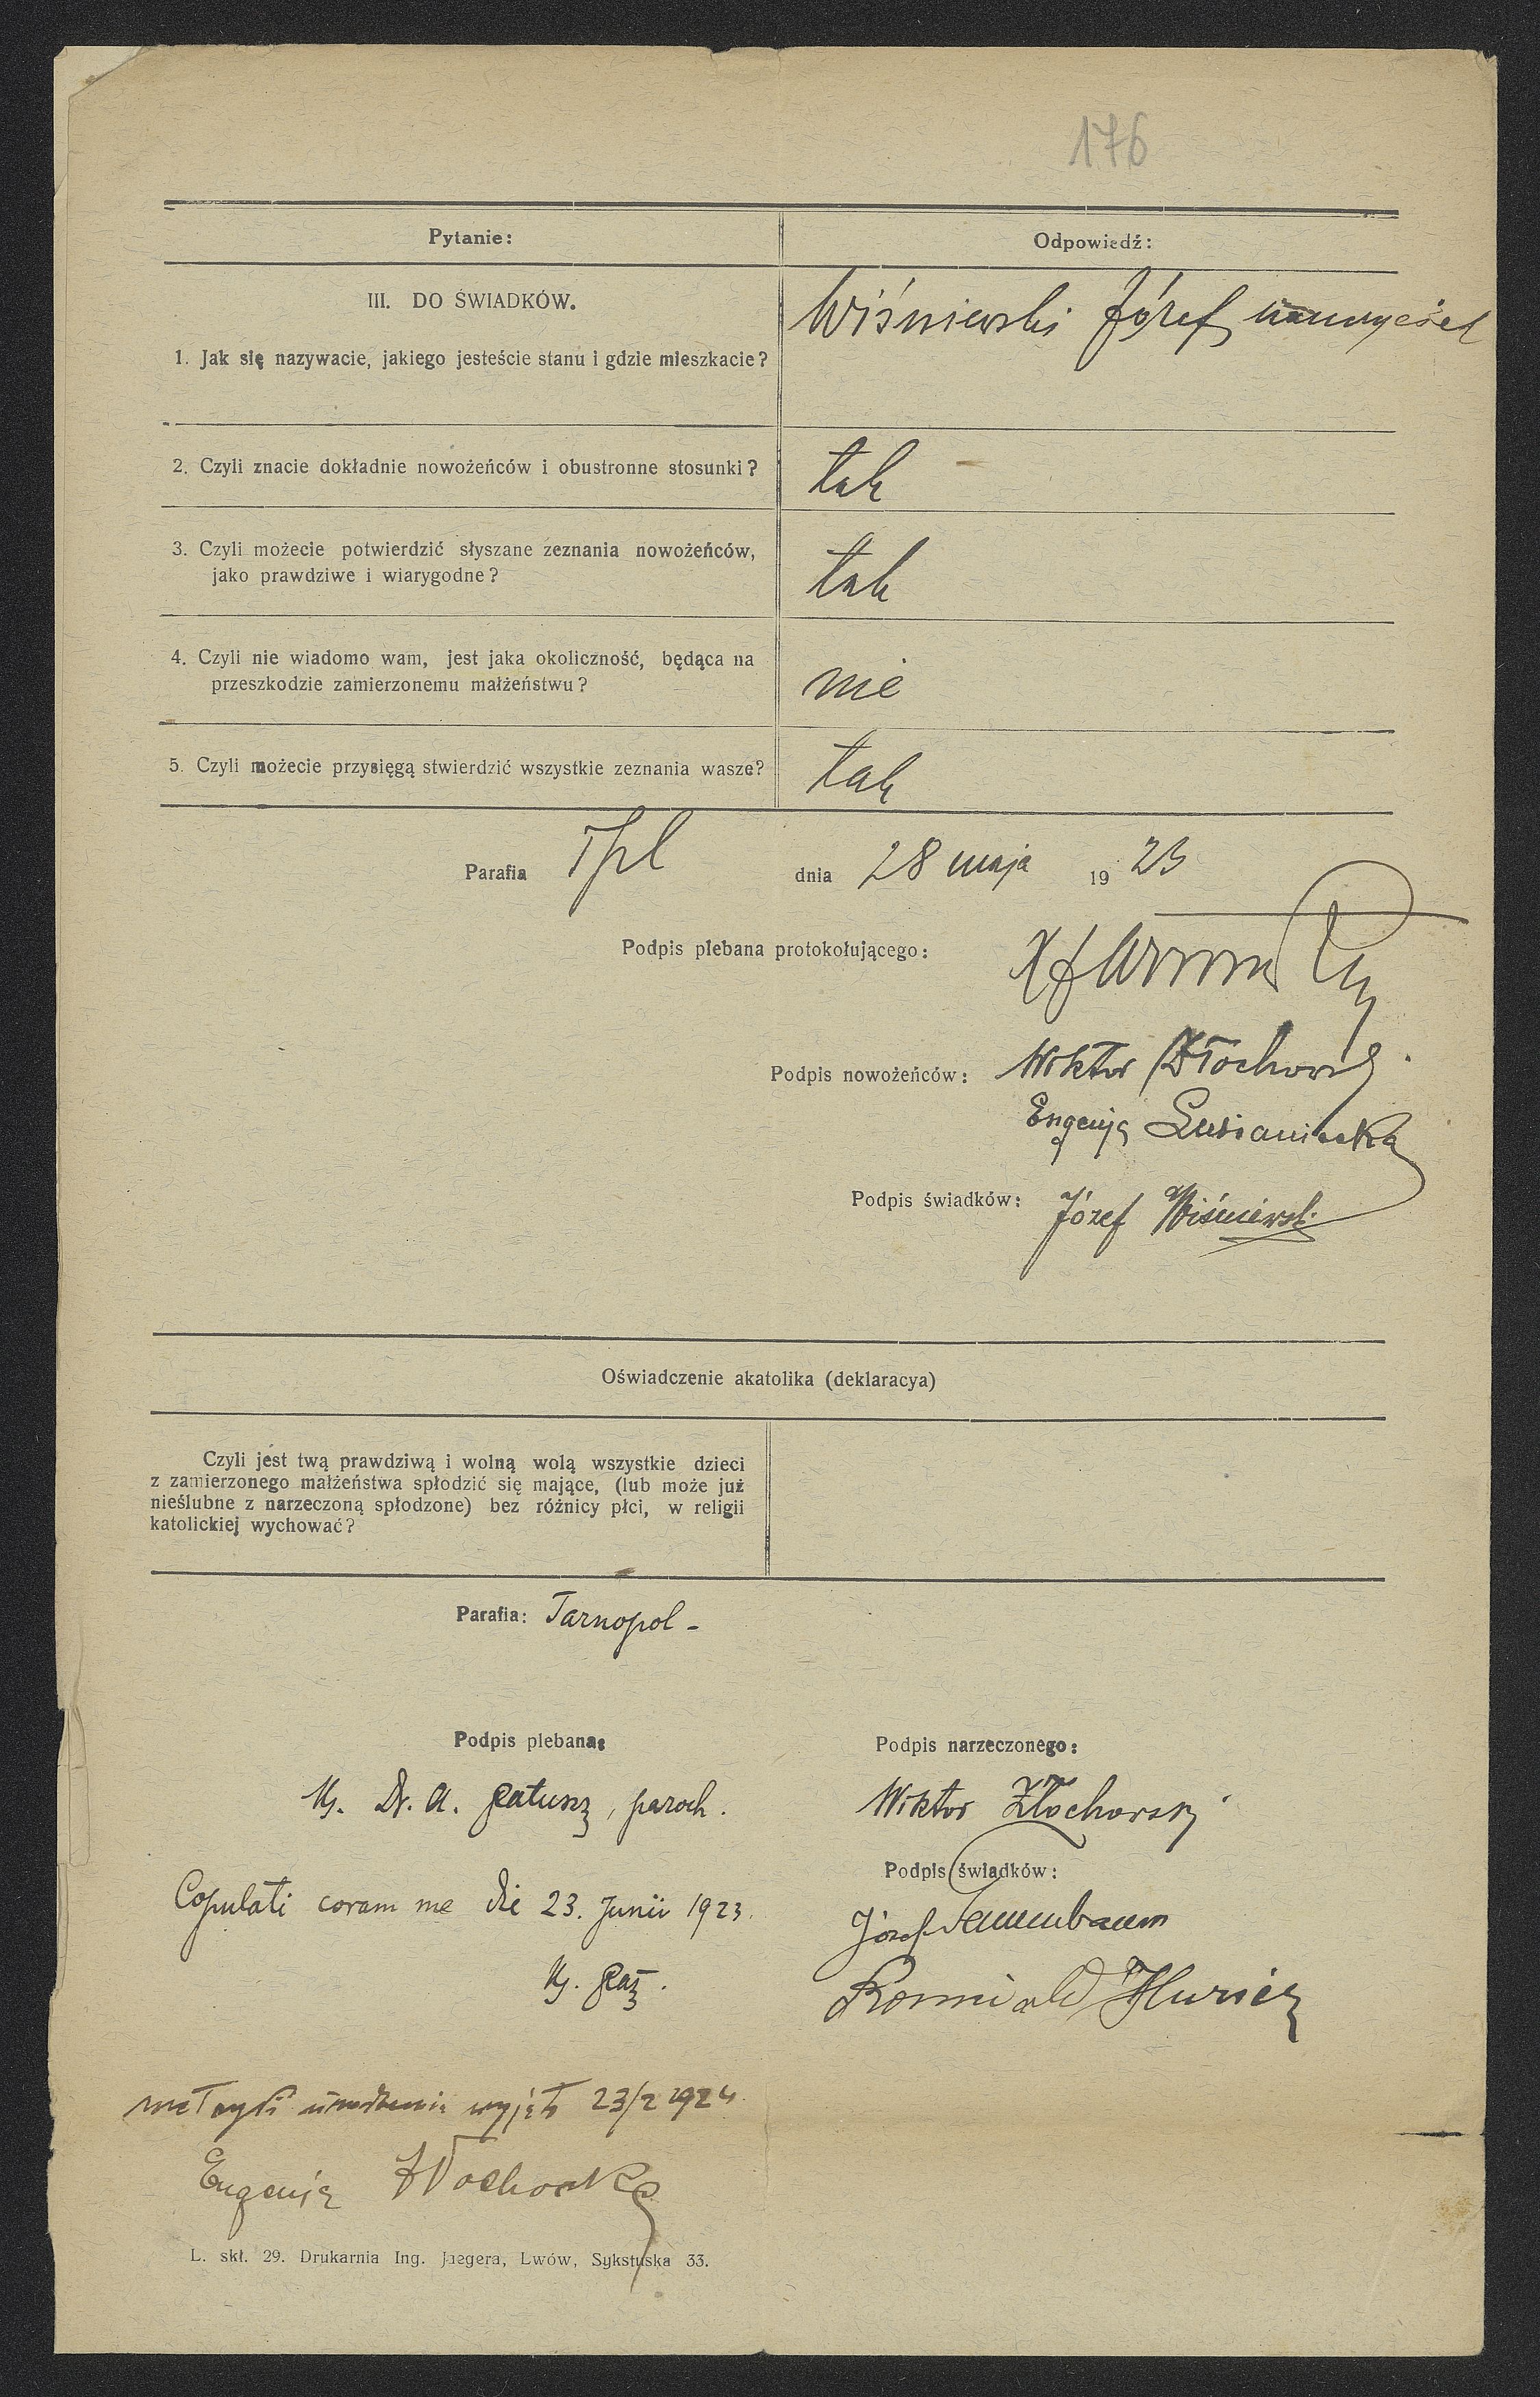 176
Pytanie: Odpowiedź:
III. DO ŚWIADKÓW.
1. Jak się nazywacie, jakiego jesteście stanu i gdzie mieszkacie?
Wiśniewski Józef, nauczyciel
2. Czyli znacie dokładnie nowożeńców i obustronne stosunki?
tak
3. Czyli możecie potwierdzić słyszane zeznania nowożeńców,
jako prawdziwe i wiarygodne?
tak
4. Czyli nie wiadomo wam, jest jaka okoliczność, będąca na
przeszkodzie zamierzonemu małżeństwu?
nie
5. Czyli możecie przysięgą stwierdzić wszystkie zeznania wasze?
tak
Parafia Tpl dnia 28 maja 1923
Podpis plebana protokołującego:
Podpis nowożeńców: Wiktor Złochowski
Eugenja
Podpis świadków: Józef Wiśniewski
Oświadczenie akatolika (deklaracya)
Czyli jest twą prawdziwą i wolną wolą wszystkie dzieci
z zamierzonego małżeństwa spłodzić się mające, (lub może już
nieślubne z narzeczoną spłodzone) bez różnicy płci, w religii
katolickiej wychować?
Parafia: Tarnopol -
Podpis plebana:
X. Dr. A. Ratusz, paroch.
Podpis narzeczonego:
Wiktor Złochowski
Podpis świadków:
Józef Tannenbaum
Romuald
Copulati coram me die 23. Junii 1923.
X. Rat.
metrykę urodzenia wyjęto 23/2 1924
Eugenia Złochowska
L. skł. 29. Drukarnia Ing. Jaegera, Lwów, Sykstuska 33.